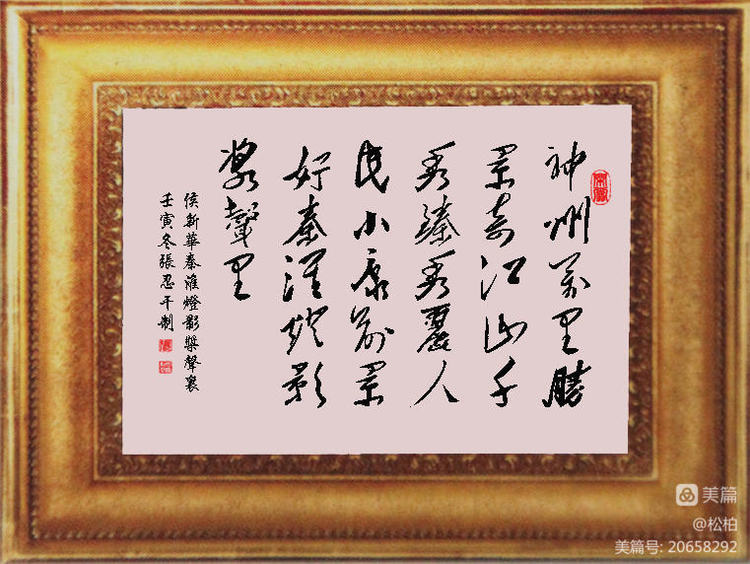 神州萬里勝
景奇江山千
秀臻秀麗人
民小康前景
好秦淮燈影
槳聲里
侯新華秦淮燈影槳聲裏
壬寅冬張忍干制
美篇
@松柏
美篇号: 20658292